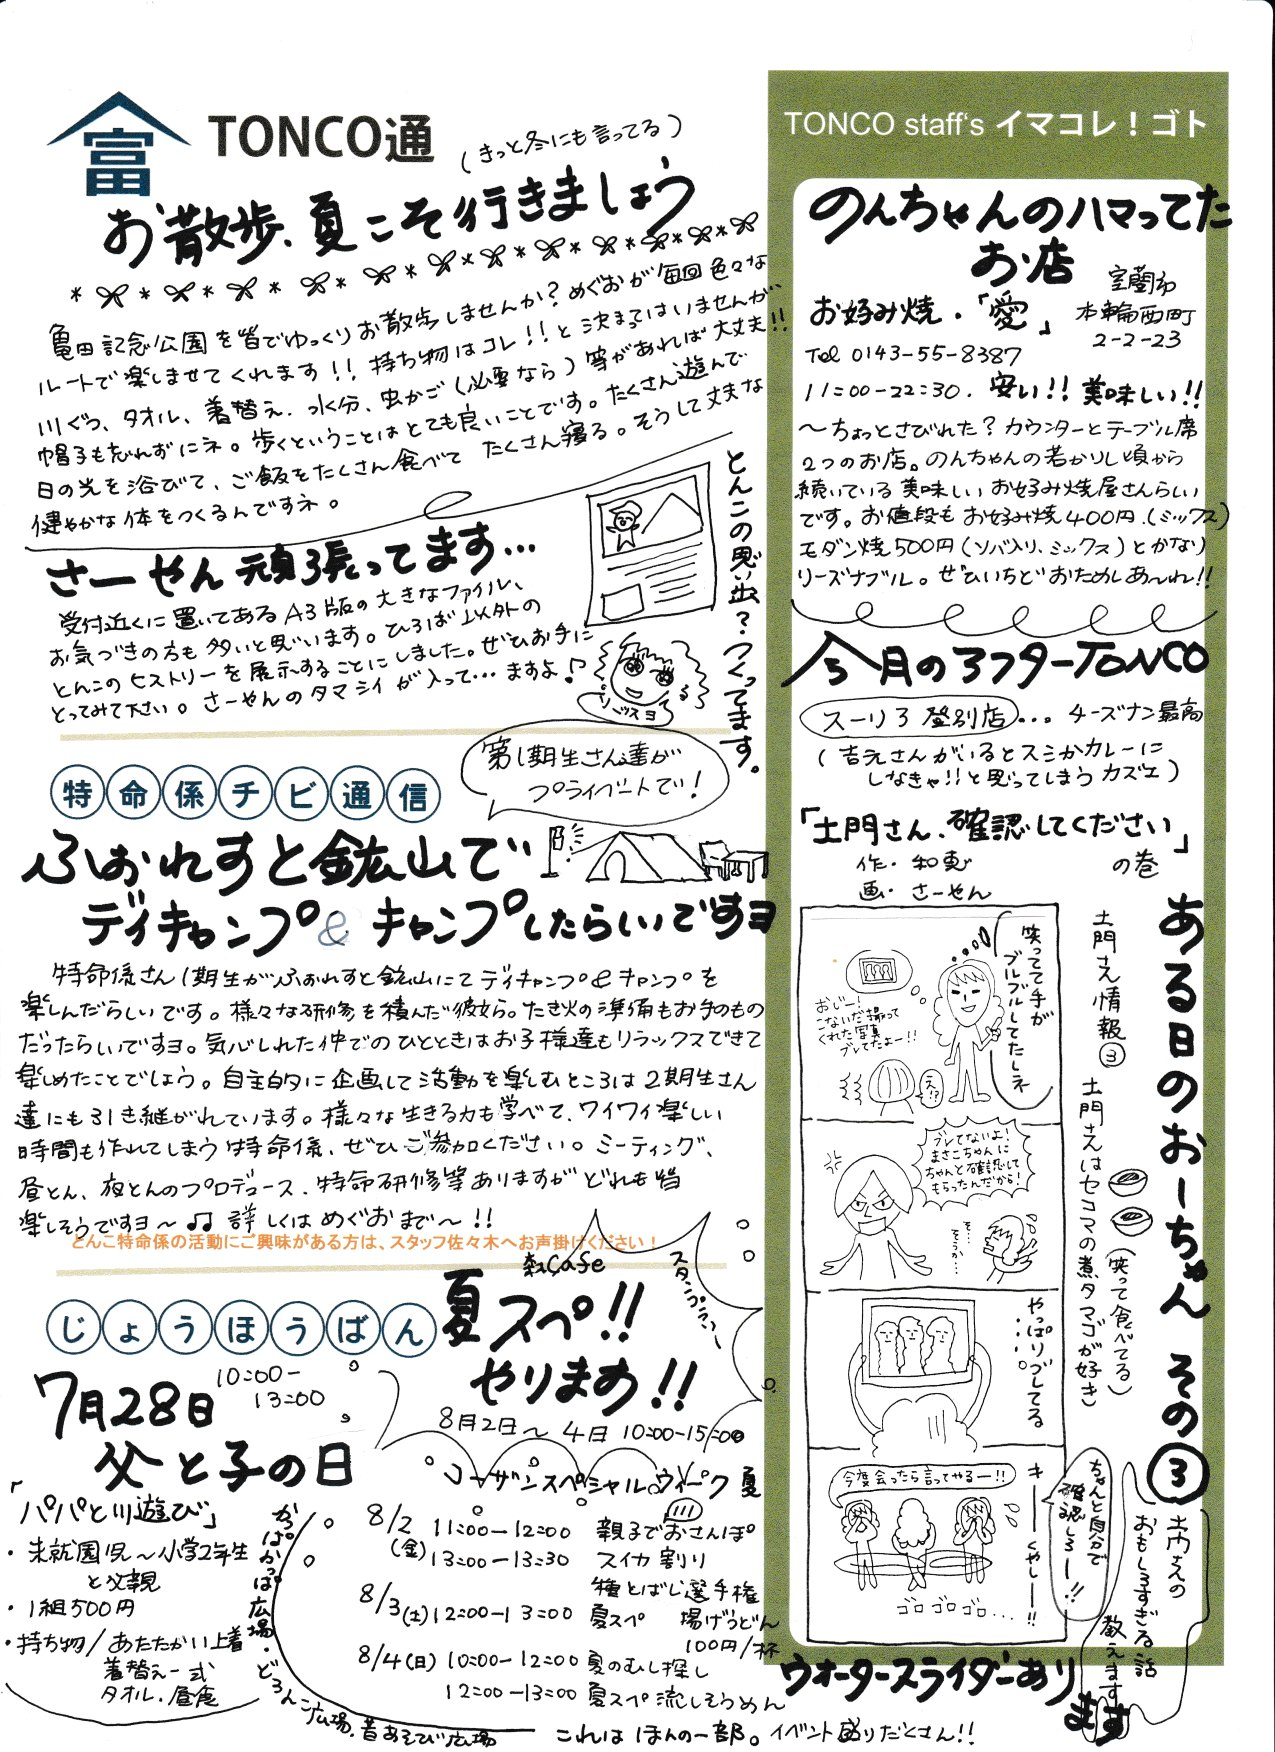 富
TONCO通
(きっと冬にも言ってる)
お散歩、夏こそ行きましょう
亀田記念公園を皆でゆっくりお散歩しませんか？めぐおが毎回色々な
ルートで楽しませてくれます!!持ち物はコレ!!と決まってはいませんが
川ぐつ、タオル、着替え、水分、虫かご(必要なら)等があれば大丈夫!!
帽子も忘れずにネ。歩くということはとても良いことです。たくさん遊んで
日の光を浴びて、ご飯をたくさん食べて たくさん寝る。そうして丈夫な
健やかな体をつくるんですネ。
さーやん頑張ってます…
受付近くに置いてあるA3版の大きなファイル、
お気づきの方も多いと思います。ひろば以外の
とんこのヒストリーを展示することにしました。ぜひお手に
とってみて下さい。さーやんのタマシイが入って…ますよ♪
とんこの思い出？つくってます。
特命係チビ通信
第1期生さん達が
プライベートで！
ふぉれすと鉱山で
デイキャンプ&キャンプしたらしいですヨ
特命係さん1期生がふぉれすと鉱山にてデイキャンプ&キャンプを
楽しんだらしいです。様々な研修を積んだ彼女ら。たき火の準備もお手のもの
だったらしいですヨ。気心しれた仲でのひとときはお子様達もリラックスできて
楽しめたことでしょう。自主的に企画して活動を楽しむところは2期生さん
達にも引き継がれています。様々な生きる力も学べて、ワイワイ楽しい
時間も作れてしまう特命係、ぜひご参加ください。ミーティング、
昼とん、夜とんのプロデュース、特命研修等ありますがどれも皆
楽しそうですヨ～♫ 詳しくはめぐおまで～!!
とんこ特命係の活動にご興味がある方は、スタッフ佐々木へお声掛けください！
じょうほうばん
7月28日
10:00-
13:00
父と子の日
「パパと川遊び」
・未就園児～小学2年生
と父親
・1組500円
・持ち物/あたたかい上着
着替え一式
タオル・昼食
森Cafe
夏スペ!!
やります!!
8月2日～4日 10:00-15:00
コーザンスペシャルウィーク夏
8/2(金) 11:00-12:00 親子で川おさんぽ
13:00-13:30 スイカ割り
種とばし選手権
8/3(土) 12:00-13:00 夏スペ 揚げうどん
100円/杯
8/4(日) 10:00-12:00 夏のむし探し
12:00-13:00 夏スペ 流しそうめん
かっぱかっぱ広場・どろんこ広場、昔あそび広場
これはほんの一部。イベント盛りだくさん!!
ウォータースライダーあります
TONCO staff's イマコレ！ゴト
のんちゃんのハマってた
お店
お好み焼・「愛」
室蘭市
本輪西町
2-2-23
Tel 0143-55-8387
11:00-22:30. 安い!! 美味しい!!
～ちょっとさびれた？カウンターとテーブル席
2つのお店。のんちゃんの若かりし頃から
続いている美味しいお好み焼屋さんらしい
です。お値段もお好み焼400円.(ミックス)
モダン焼500円(ソバ入り、ミックス)とかなり
リーズナブル。ぜひいちどおためしあ～れ!!
今月のアフターTONCO
スーリア登別店…チーズナン最高
(吉元さんがいるとスミかカレーに
しなきゃ!!と思ってしまうカズエ)
「土門さん、確認してください」
の巻
作・和恵
画・さーやん
笑ってて手が
ブルブルしてたしネ
おじー！
こないだ撮って
くれた写真
ブレてたよー!!
え!?
ブレてないよ！
まさこちゃんに
ちゃんと確認して
もらったんだから！
やっぱりブレてる
キーーくやしーー!!
今度会ったら言ってやるー!!
ゴロゴロゴロ…
ちゃんと自分で
確認しろー!!
ある日のおーちゃん その③
土門さん情報③
土門さんはセコマの煮タマゴが好き
(笑って食べてる)
土門さんの
おもしろすぎる話
教えます